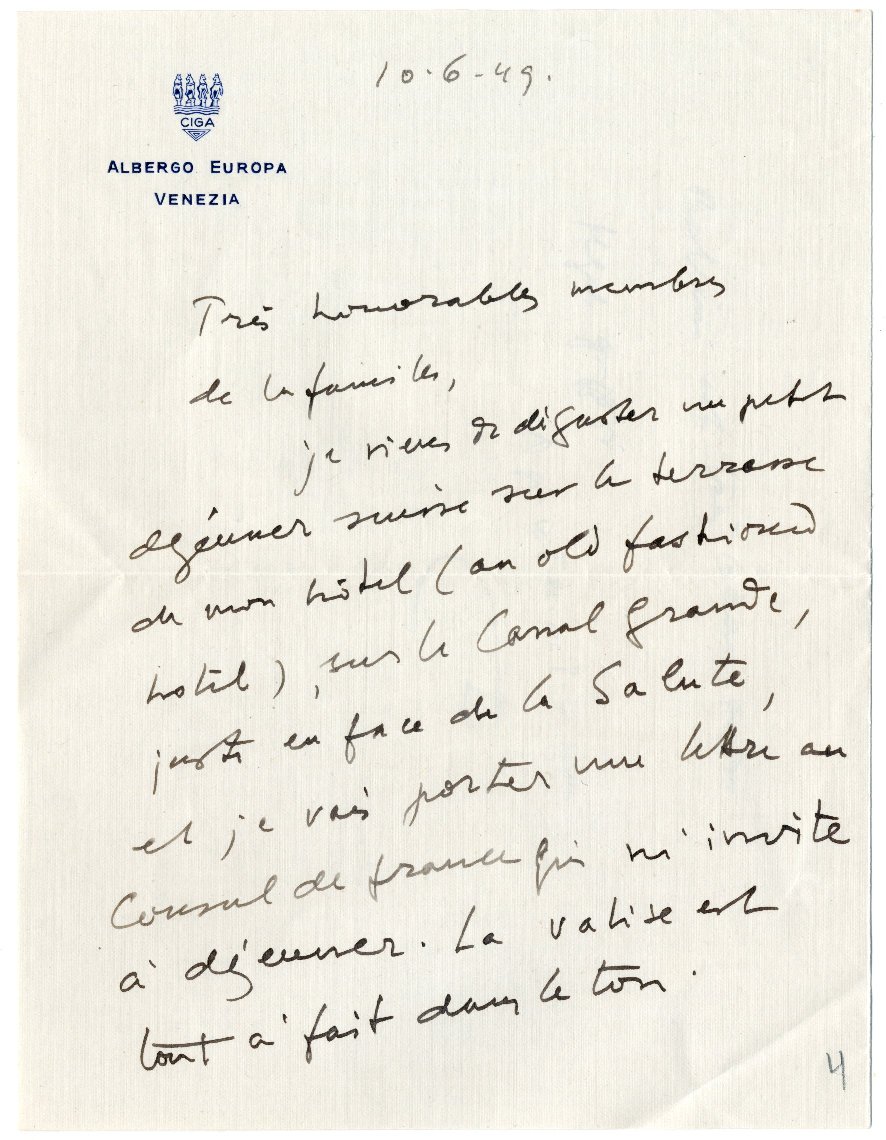 10-6-49.
CIGA
ALBERGO EUROPA
VENEZIA
Très honorables membres
de la famille,
je viens de déguster un petit
déjeuner suisse sur la terrasse
de mon hôtel (an old fashioned
hotel), sur le Canal Grande,
juste en face de la Salute,
et je vais porter une lettre au
Consul de france qui m'invite
à déjeuner. La valise est
tout à fait dans le ton.
4